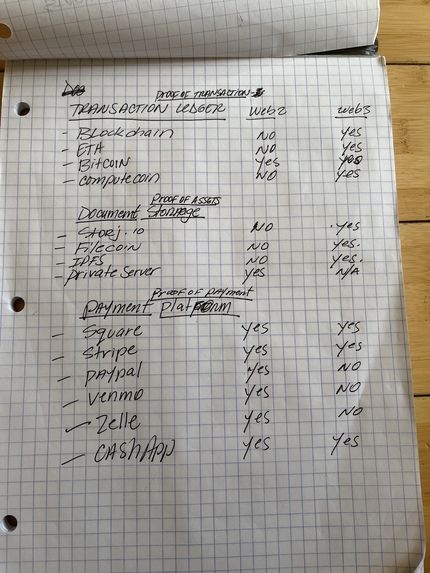 PROOF OF TRANSACTION
TRANSACTION LEDGER Web2 Web3
- Blockchain NO Yes
- ETA NO Yes
- Bitcoin Yes Yes
- computecoin NO Yes
PROOF OF ASSETS
Document Storage
- Storj.io NO . Yes
- Filecoin NO Yes.
- IPFS NO Yes.
- private Server Yes N/A
PROOF OF PAYMENT
PAYMENT Platform
- Square Yes Yes
- Stripe Yes Yes
- PAYPAL Yes NO
- Venmo Yes NO
- Zelle Yes NO
- CASHAPP Yes Yes